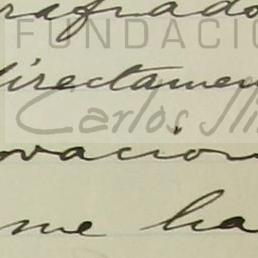 rafrado
FUNDACIÓ
directamen
Carlos
ovacion
me ha